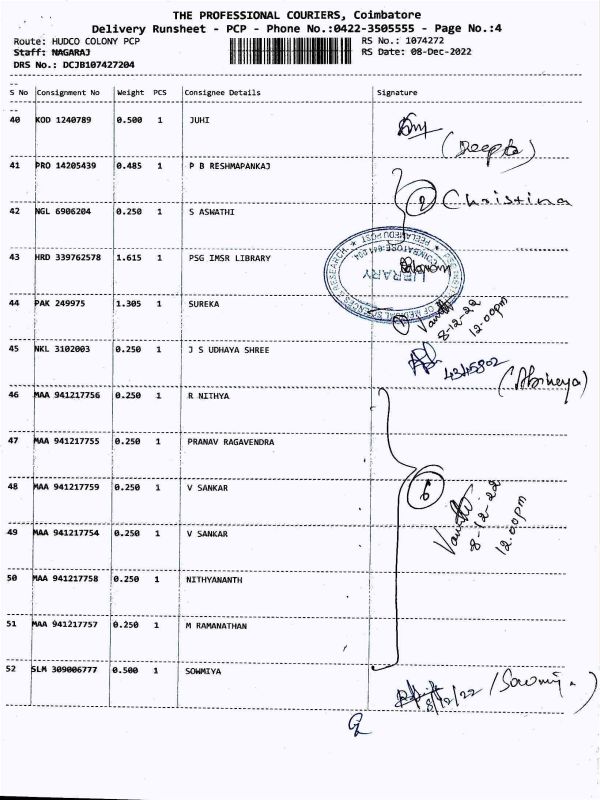 THE PROFESSIONAL COURIERS, Coimbatore
Delivery Runsheet - PCP - Phone No.:0422-3505555 - Page No.:4
Route: HUDCO COLONY PCP RS No.: 1074272
Staff: NAGARAJ RS Date: 08-Dec-2022
DRS No.: DCJB107427204
S No Consignment No Weight PCS Consignee Details Signature
40 KOD 1240789 0.500 1 JUHI
(Deepta)
41 PRO 14205439 0.485 1 P B RESHMAPANKAJ
2 Christina
42 NGL 6906204 0.250 1 S ASWATHI
43 HRD 339762578 1.615 1 PSG IMSR LIBRARY
LIBRARY
44 PAK 249975 1.305 1 SUREKA
1 8-12-22
12.00pm
45 NKL 3102003 0.250 1 J S UDHAYA SHREE
46 MAA 941217756 0.250 1 R NITHYA
47 MAA 941217755 0.250 1 PRANAV RAGAVENDRA
48 MAA 941217759 0.250 1 V SANKAR
6
8-12-22
12.00pm
49 MAA 941217754 0.250 1 V SANKAR
50 MAA 941217758 0.250 1 NITHYANANTH
51 MAA 941217757 0.250 1 M RAMANATHAN
52 SLM 309006777 0.500 1 SOWMIYA
8/12/22